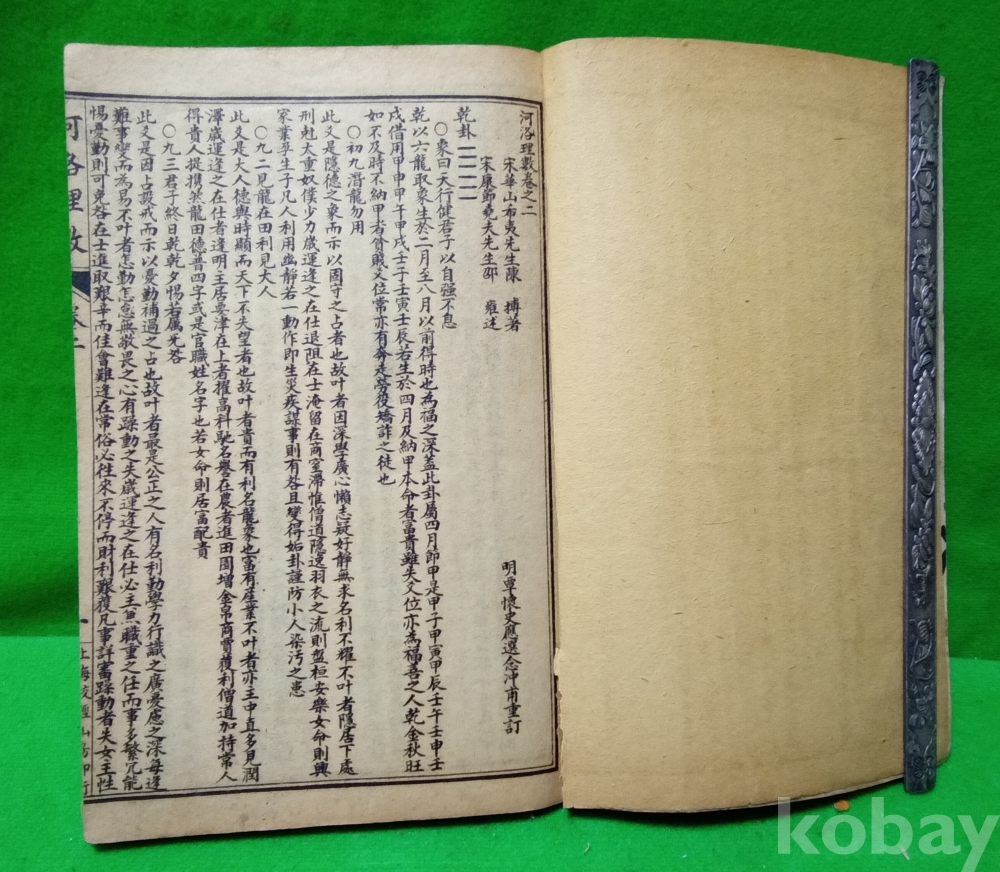 河洛理數卷之二
宋華山布夷先生陳 摶著
宋康節堯夫先生邵 雍述
明覃懷史應選念冲甫重訂
乾卦
○象曰天行健君子以自强不息
乾以六龍取象生於二月至八月以前得時也為福之深蓋此卦屬四月節甲是甲子甲寅甲辰壬午壬申壬
戌借用甲申甲午甲戌壬子壬寅壬辰若生於四月及納甲本命者富貴雖失爻位亦為福善之人乾金秋旺
如不及時不納甲者貧賤爻位常亦有奔走勞役矯詐之徒也
○初九潛龍勿用
此爻是隱德之象而示以固守之占者也故叶者因深學廣心懶志疑好靜無求名利不耀不叶者隱居下處
刑尅太重奴僕少力歲運逢之在仕退阻在士淹留在商室滯惟僧道隱逸羽衣之流則盤桓安樂女命則興
家業孕生子凡人利用幽靜若一動作即生災疾謀事則有咎且變得姤卦謹防小人染污之患
○九二見龍在田利見大人
此爻是大人德與時顯而天下不失望者也故叶者貴而有利名龍象也富有産業不叶者亦主中直多見潤
澤歲運逢之在仕者逢明主居要津在上者擢高科馳名譽在農者進田周增金帛商賈獲利僧道加持常人
得貴人提携然龍田德普四字或是官職姓名字也若女命則居富配貴
○九三君子終日乾乾夕惕若厲无咎
此爻是因占設戒而示以憂勤補過之占也故叶者最是公正之人有名利勤學力行識之廣憂慮之深每逢
難事變而為易不叶者怎勤怎怠無敬畏之心有躁動之失歲運逢之在仕必主魚職重之任而事多繁冗能
惕憂動則可免咎在士進取艱辛而佳會難逢在常俗必往來不停而財利艱獲凡事詳審躁動者失女主性
河洛理數 卷二
一
上海校經山房印行
kobay